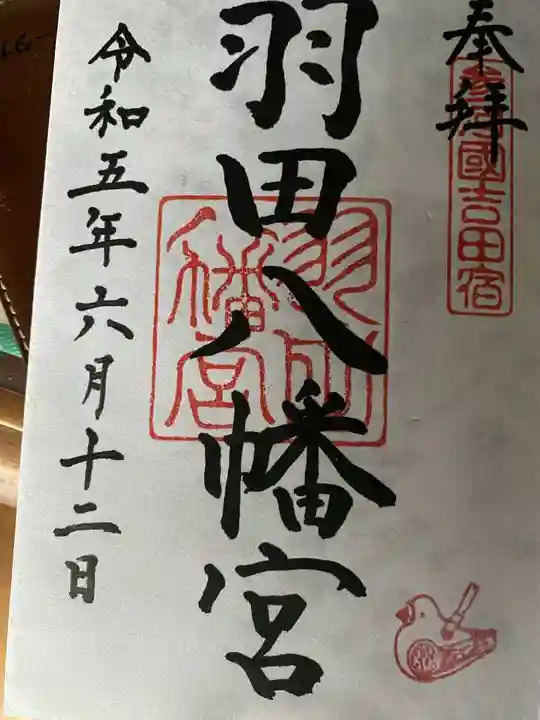 奉拜
國吉田宿
羽田八幡宮
羽田八幡宮
令和五年六月十二日